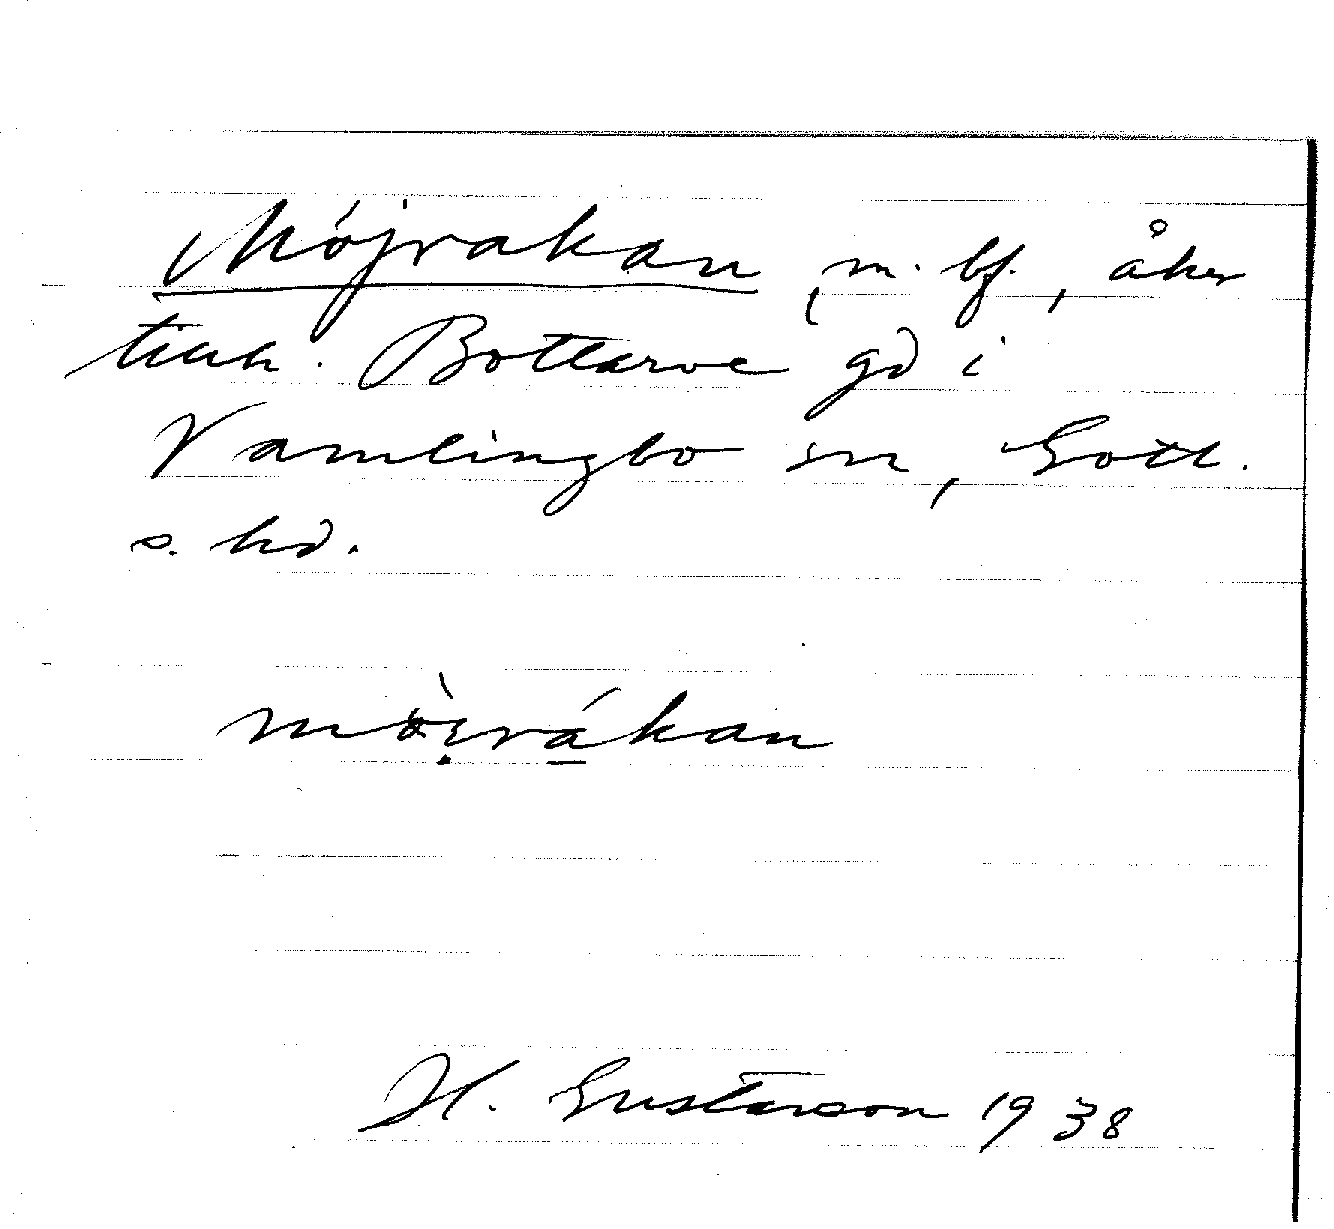 Mójrakan, m. bf., åker
tillh. Bottarve gd i
Vamlingbo sn, Gotl.
s. hd.
mòi̩rákan
H. Gustavson 1938